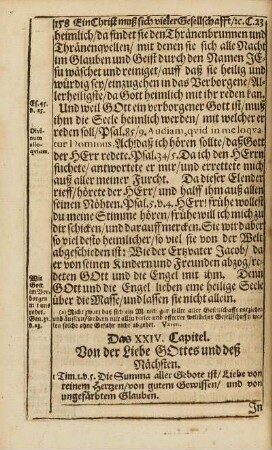 158 Ein Christ muß sich vieler Gesellschafft/ꝛc. C.23
heimlich/da findet sie den Thränenbrunnen und
Thränenqvellen/ mit denen sie sich alle Nacht
im Glauben und Geist durch den Namen JE-
su wäschet und reiniget/ auff daß sie heilig und
würdig sey/einzugehen in das Verborgene/Al-
lerheiligste/da Gott heimlich mit ihr reden kan.
Und weil GOtt ein verborgener Gott ist/muß
ihm die Seele heimlich werden/ mit welcher er
reden soll/Psal. 85/9. Audiam, qvid in me loqva-
tur Dominus. Ach! daß ich hören sollte/daß Gott
der HErr redete. Psal. 34/5. Da ich den HErrn
suchete/ antwortete er mir/ und errettete mich
auß aller meiner Furcht. Da dieser Elender
rieff/ hörete der HErr/ und halff ihm auß allen
seinen Nöhten. Psal. 5. v. 4. HErr! frühe wollest
du meine Stimme hören/ frühe will ich mich zu
dir schicken/ und darauff mercken. Sie wird auch
so viel desto heimlicher/so viel sie von der Welt
abgeschieden ist: Wie der Ertzvater Jacob/ da
er von seinen Kindern und Freunden abzog/re-
deten GOtt und die Engel mit ihm. Denn
GOtt und die Engel lieben eine heilige Seele
über die Masse/und lassen sie nicht allein.
Es. 45.
v. 15.
Divi-
num
allo-
qvium.
Wie
Gott
im Ver-
borgen
mit uns
redet.
Gen. 32.
v. 23.
Das XXIV. Capitel.
Von der Liebe GOttes und deß
Nächsten.
1 Tim. 1. v. 5. Die Summa aller Gebote ist/ Liebe von
reinem Hertzen/von gutem Gewissen/ und von
ungefärbtem Glauben.
In